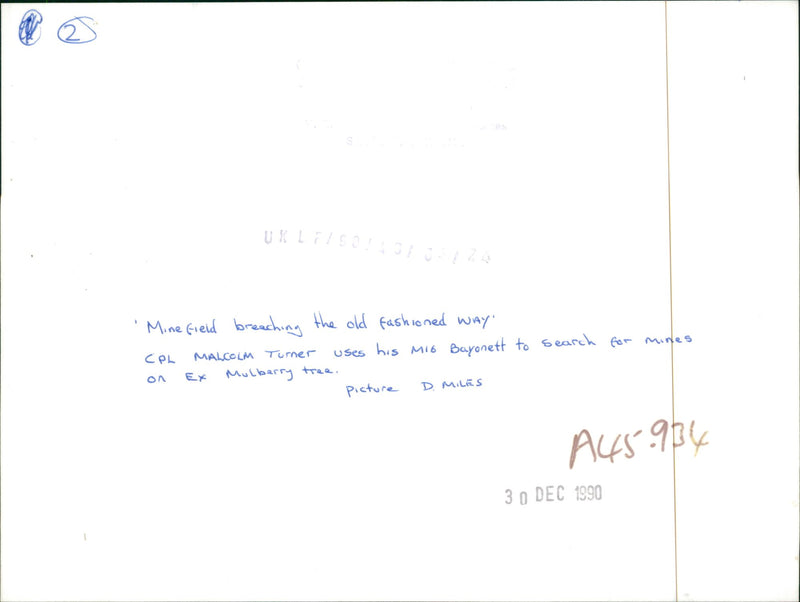 2
'Minefield breaching the old fashioned WAY'
CPL MALCOLM Turner uses his M16 Bayonett to search for mines
on Ex Mulberry tree.
picture D. MILES
A45.934
30 DEC 1990